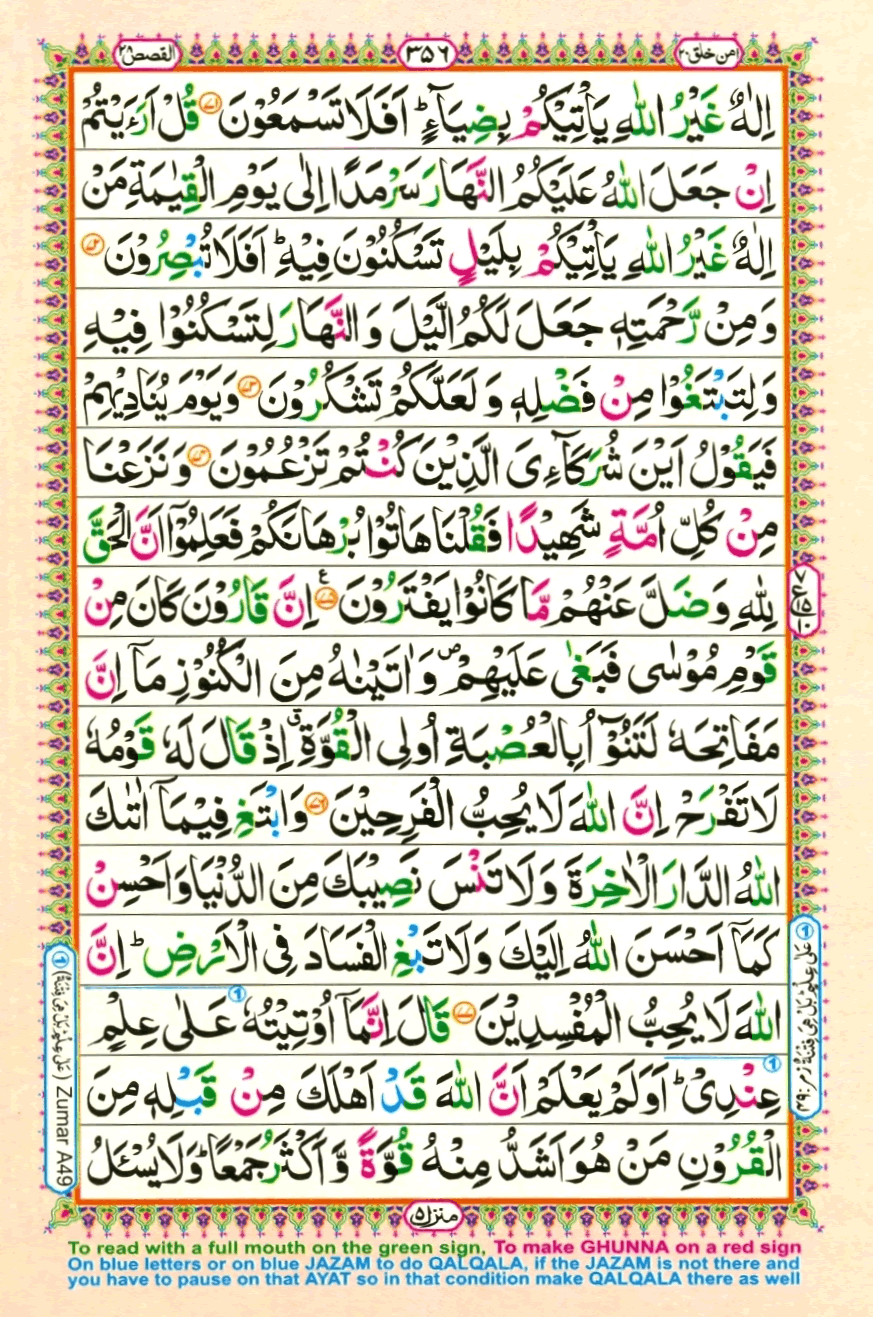 امن خلق ۲۰
۳۵۶
القصص ۲۸
اِلٰهٌ غَيْرُ اللّٰهِ يَاْتِيْكُمْ بِضِيَآءٍ ؕ اَفَلَا تَسْمَعُوْنَ ﴿۷۱﴾ قُلْ اَرَءَيْتُمْ
اِنْ جَعَلَ اللّٰهُ عَلَيْكُمُ النَّهَارَ سَرْمَدًا اِلٰى يَوْمِ الْقِيٰمَةِ مَنْ
اِلٰهٌ غَيْرُ اللّٰهِ يَاْتِيْكُمْ بِلَيْلٍ تَسْكُنُوْنَ فِيْهِ ؕ اَفَلَا تُبْصِرُوْنَ ﴿۷۲﴾
وَمِنْ رَّحْمَتِهٖ جَعَلَ لَكُمُ الَّيْلَ وَ النَّهَارَ لِتَسْكُنُوْا فِيْهِ
وَلِتَبْتَغُوْا مِنْ فَضْلِهٖ وَ لَعَلَّكُمْ تَشْكُرُوْنَ ﴿۷۳﴾ وَيَوْمَ يُنَادِيْهِمْ
فَيَقُوْلُ اَيْنَ شُرَكَآءِىَ الَّذِيْنَ كُنْتُمْ تَزْعُمُوْنَ ﴿۷۴﴾ وَ نَزَعْنَا
مِنْ كُلِّ اُمَّةٍ شَهِيْدًا فَقُلْنَا هَاتُوْا بُرْهَانَكُمْ فَعَلِمُوْۤا اَنَّ الْحَقَّ
لِلّٰهِ وَ ضَلَّ عَنْهُمْ مَّا كَانُوْا يَفْتَرُوْنَ ﴿۷۵﴾ ع اِنَّ قَارُوْنَ كَانَ مِنْ
قَوْمِ مُوْسٰى فَبَغٰى عَلَيْهِمْ ۪ وَ اٰتَيْنٰهُ مِنَ الْكُنُوْزِ مَاۤ اِنَّ
مَفَاتِحَهٗ لَتَنُوْٓاُ بِالْعُصْبَةِ اُولِى الْقُوَّةِ ۗ اِذْ قَالَ لَهٗ قَوْمُهٗ
لَا تَفْرَحْ اِنَّ اللّٰهَ لَا يُحِبُّ الْفَرِحِيْنَ ﴿۷۶﴾ وَابْتَغِ فِيْمَاۤ اٰتٰىكَ
اللّٰهُ الدَّارَ الْاٰخِرَةَ وَ لَا تَنْسَ نَصِيْبَكَ مِنَ الدُّنْيَا وَ اَحْسِنْ
كَمَاۤ اَحْسَنَ اللّٰهُ اِلَيْكَ وَ لَا تَبْغِ الْفَسَادَ فِى الْاَرْضِ ؕ اِنَّ
اللّٰهَ لَا يُحِبُّ الْمُفْسِدِيْنَ ﴿۷۷﴾ قَالَ اِنَّمَاۤ اُوْتِيْتُهٗ عَلٰى عِلْمٍ
عِنْدِىْ ؕ اَوَلَمْ يَعْلَمْ اَنَّ اللّٰهَ قَدْ اَهْلَكَ مِنْ قَبْلِهٖ مِنَ
الْقُرُوْنِ مَنْ هُوَ اَشَدُّ مِنْهُ قُوَّةً وَّ اَكْثَرُ جَمْعًا ؕ وَلَا يُسْـَٔلُ
منزل ۵
To read with a full mouth on the green sign, To make GHUNNA on a red sign
On blue letters or on blue JAZAM to do QALQALA, if the JAZAM is not there and
you have to pause on that AYAT so in that condition make QALQALA there as well
① (عَلٰى عِلْمٍ بَلْ هِىَ فِتْنَةٌ) Zumar A49
① عَلٰى عِلْمٍ ؕ بَلْ هِىَ فِتْنَةٌ زمر:۴۹